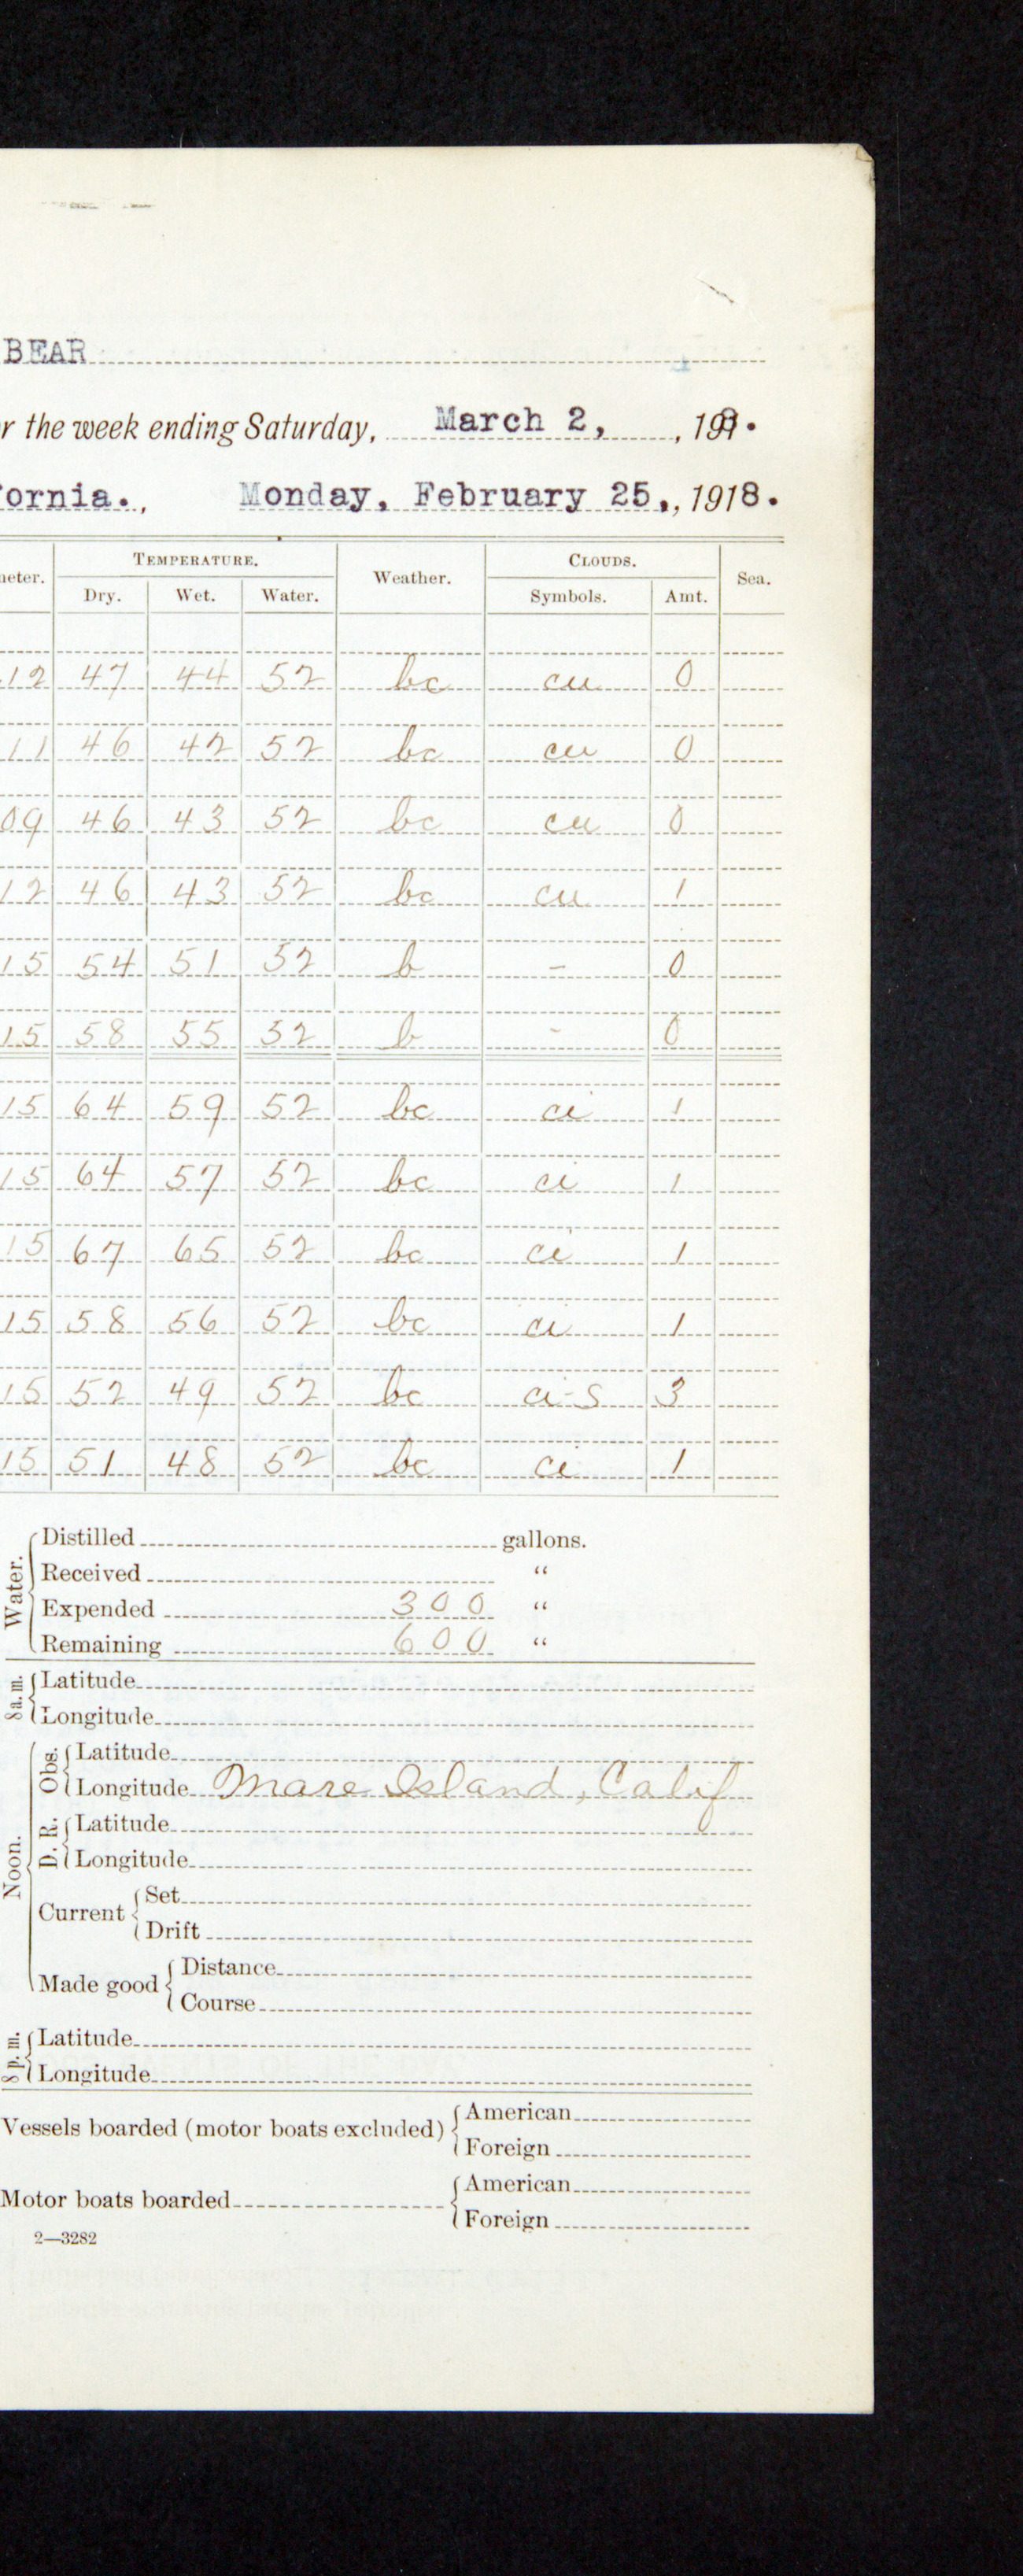 BEAR
r the week ending Saturday, March 2, , 1918.
ornia., Monday, February 25,, 1918.
neter. TEMPERATURE. Weather. CLOUDS. Sea.
Dry. Wet. Water. Symbols. Amt.
12 47 44 52 bc cu 0
11 46 42 52 bc cu 0
09 46 43 52 bc cu 0
12 46 43 52 bc cu 1
15 54 51 52 b - 0
15 58 55 52 b - 0
15 64 59 52 bc ci 1
15 64 57 52 bc ci 1
15 67 65 52 bc ci 1
15 58 56 52 bc ci 1
15 52 49 52 bc ci-s 3
15 51 48 52 bc ci 1
Water.
Distilled gallons.
Received "
Expended 300 "
Remaining 600 "
8 a.m.
Latitude
Longitude
Noon.
Obs.
Latitude
Longitude Mare Island, Calif
D. R.
Latitude
Longitude
Current
Set
Drift
Made good
Distance
Course
8 p.m.
Latitude
Longitude
Vessels boarded (motor boats excluded)
American
Foreign
Motor boats boarded
American
Foreign
2—3282